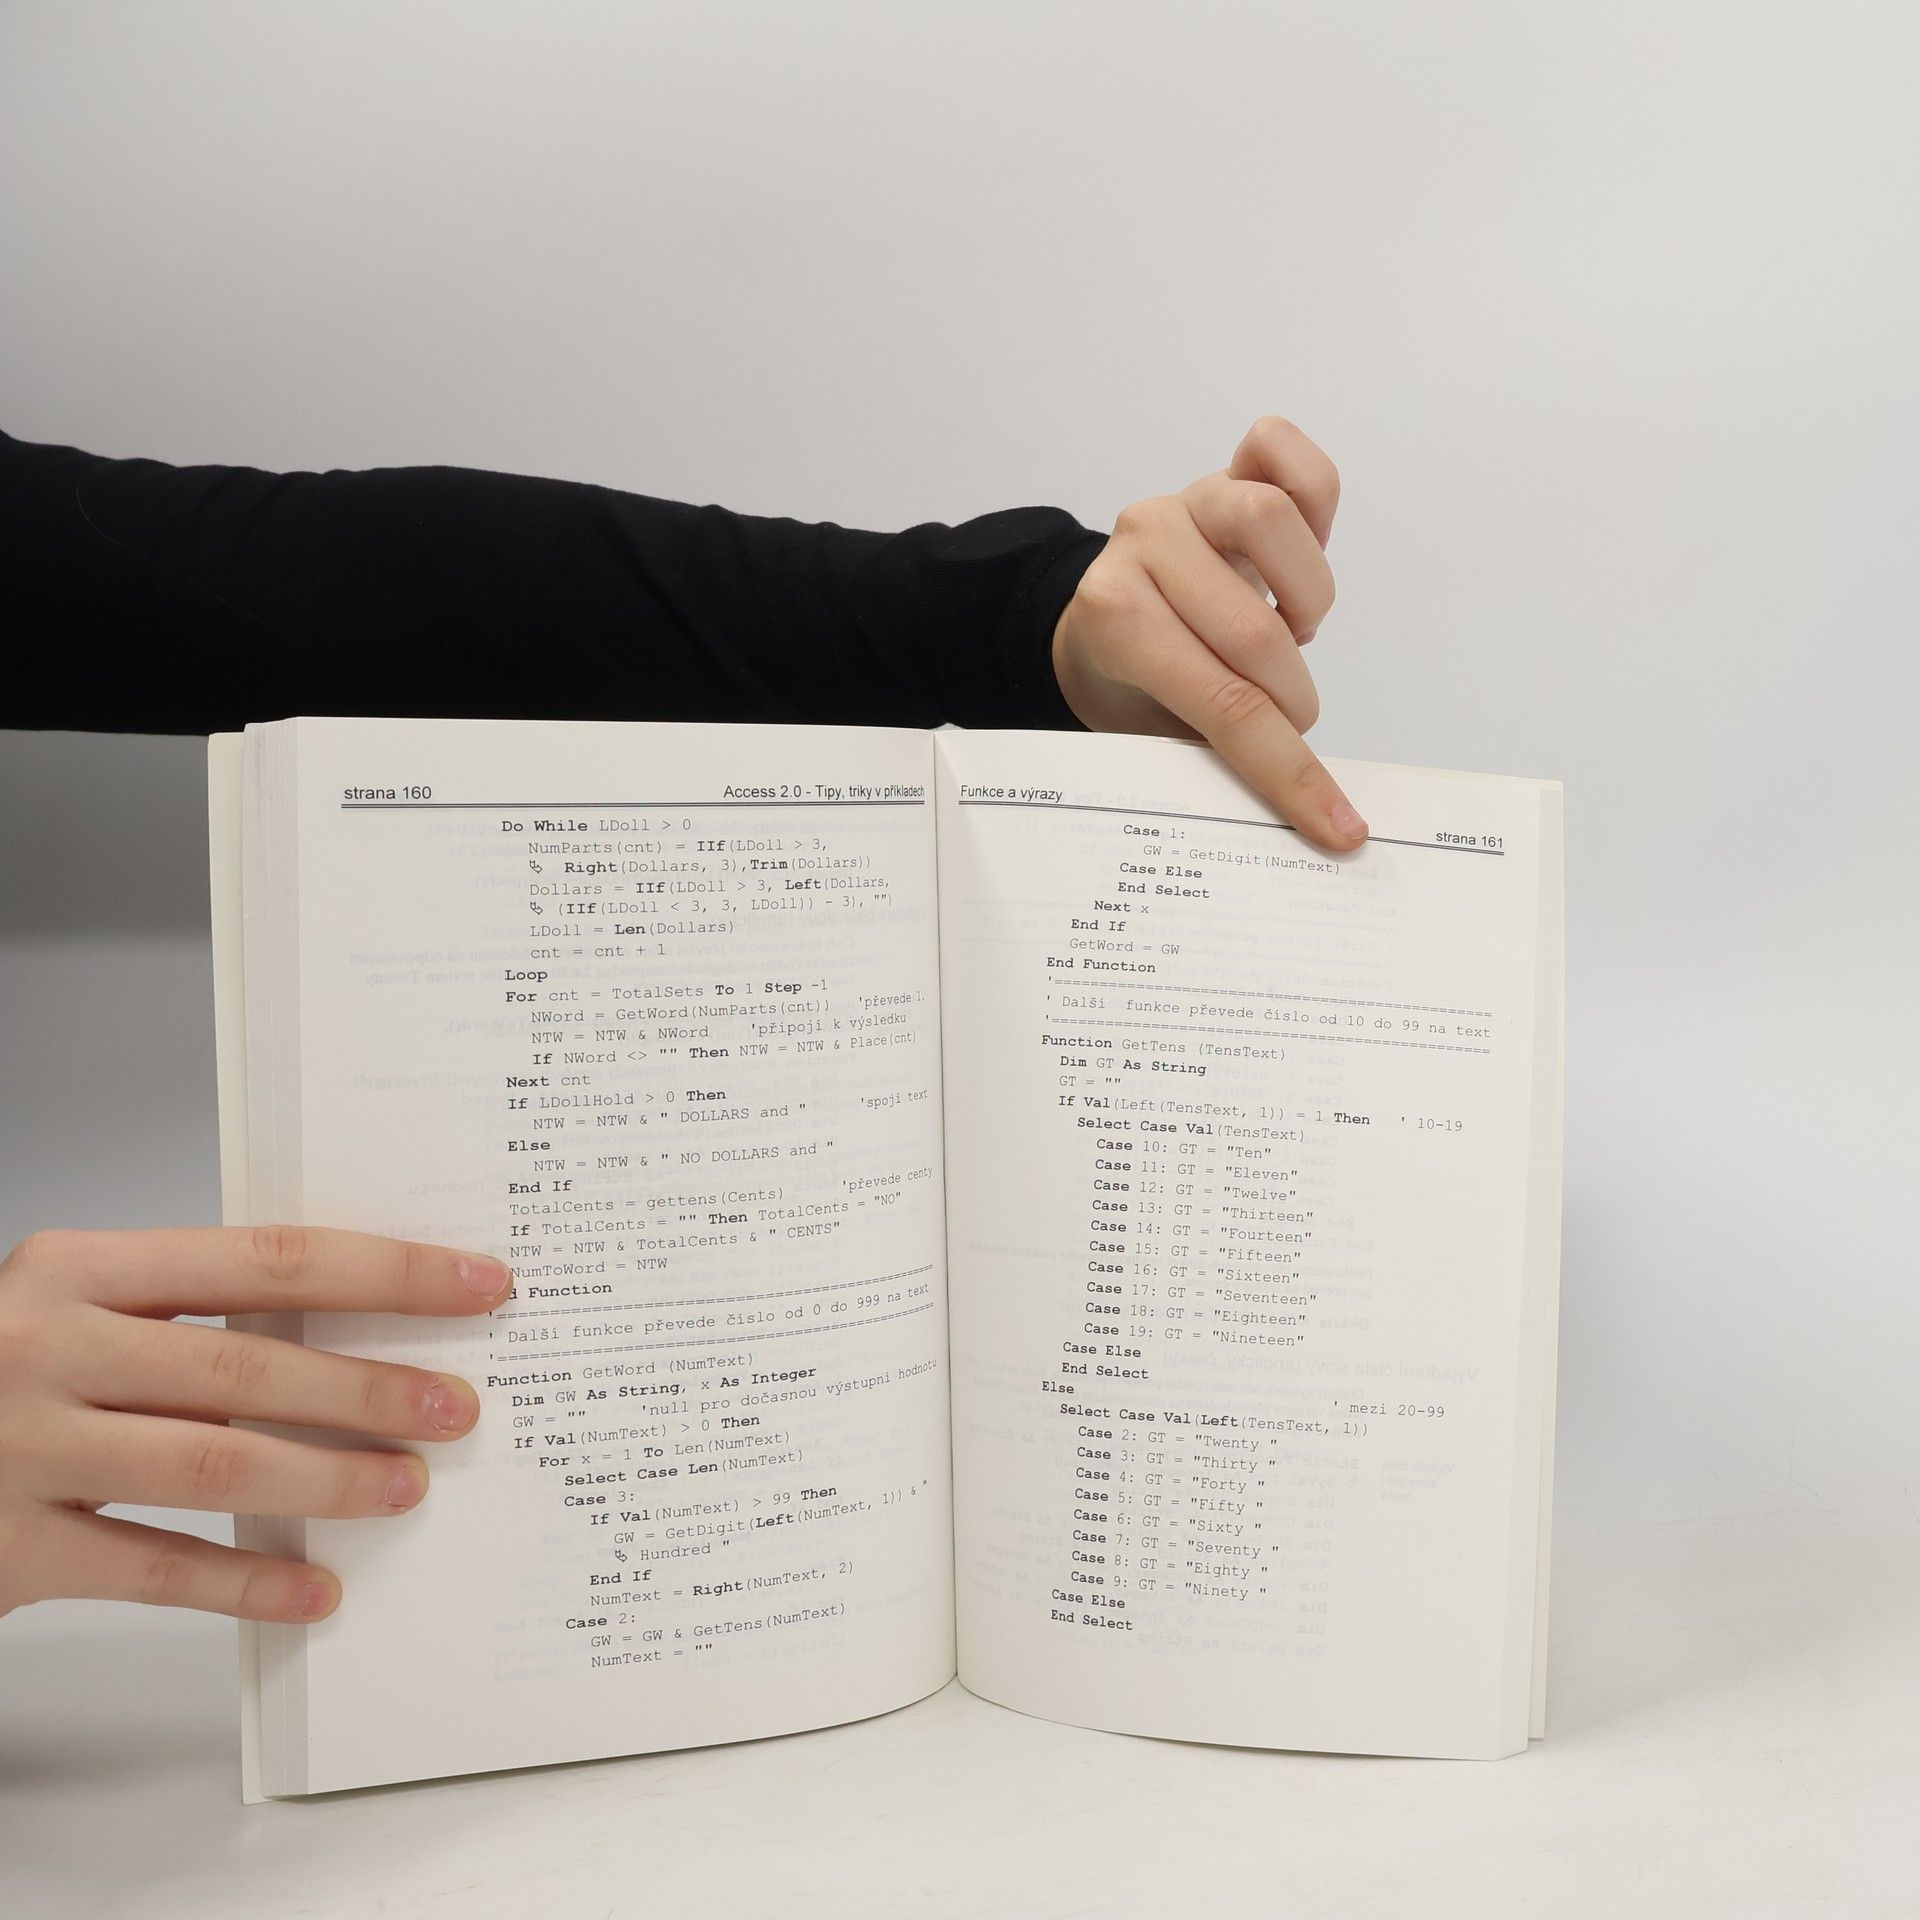 strana 160
Access 2.0 - Tipy, triky v příkladech
Do While LDoll > 0
NumParts(cnt) = IIf(LDoll > 3,
↳ Right(Dollars, 3),Trim(Dollars))
Dollars = IIf(LDoll > 3, Left(Dollars,
↳ (IIf(LDoll < 3, 3, LDoll)) - 3), "")
LDoll = Len(Dollars)
cnt = cnt + 1
Loop
For cnt = TotalSets To 1 Step -1
NWord = GetWord(NumParts(cnt)) 'převede 1.
NTW = NTW & NWord 'připojí k výsledku
If NWord <> "" Then NTW = NTW & Place(cnt)
Next cnt
If LDollHold > 0 Then
NTW = NTW & " DOLLARS and " 'spojí text
Else
NTW = NTW & " NO DOLLARS and "
End If
TotalCents = gettens(Cents) 'převede centy
If TotalCents = "" Then TotalCents = "NO"
NTW = NTW & TotalCents & " CENTS"
NumToWord = NTW
d Function
'==================================================
' Další funkce převede číslo od 0 do 999 na text
'==================================================
Function GetWord (NumText)
Dim GW As String, x As Integer
GW = "" 'null pro dočasnou výstupní hodnotu
If Val(NumText) > 0 Then
For x = 1 To Len(NumText)
Select Case Len(NumText)
Case 3:
If Val(NumText) > 99 Then
GW = GetDigit(Left(NumText, 1)) & "
↳ Hundred "
End If
NumText = Right(NumText, 2)
Case 2:
GW = GW & GetTens(NumText)
NumText = ""
Funkce a výrazy
strana 161
Case 1:
GW = GetDigit(NumText)
Case Else
End Select
Next x
End If
GetWord = GW
End Function
'==================================================
' Další funkce převede číslo od 10 do 99 na text
'==================================================
Function GetTens (TensText)
Dim GT As String
GT = ""
If Val(Left(TensText, 1)) = 1 Then ' 10-19
Select Case Val(TensText)
Case 10: GT = "Ten"
Case 11: GT = "Eleven"
Case 12: GT = "Twelve"
Case 13: GT = "Thirteen"
Case 14: GT = "Fourteen"
Case 15: GT = "Fifteen"
Case 16: GT = "Sixteen"
Case 17: GT = "Seventeen"
Case 18: GT = "Eighteen"
Case 19: GT = "Nineteen"
Case Else
End Select
Else ' mezi 20-99
Select Case Val(Left(TensText, 1))
Case 2: GT = "Twenty "
Case 3: GT = "Thirty "
Case 4: GT = "Forty "
Case 5: GT = "Fifty "
Case 6: GT = "Sixty "
Case 7: GT = "Seventy "
Case 8: GT = "Eighty "
Case 9: GT = "Ninety "
Case Else
End Select